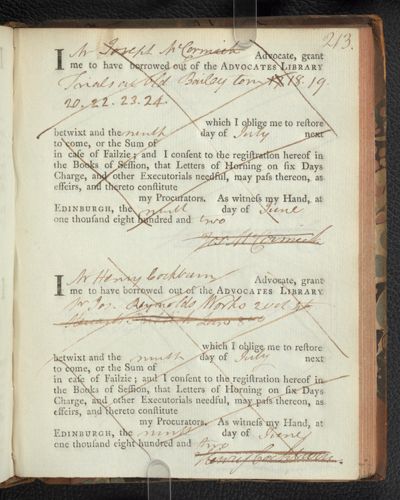 213.
I Mr Joseph McCormick Advocate, grant
me to have borrowed out of the ADVOCATES LIBRARY
Trials at Old Bailey tom 18. 19
20. 22. 23. 24.
which I oblige me to restore
betwixt and the ninth day of July next
to come, or the Sum of
in case of Failzie; and I consent to the registration hereof in
the Books of Session, that Letters of Horning on six Days
Charge, and other Executorials needful, may pass thereon, as
effeirs, and thereto constitute
my Procurators. As witness my Hand, at
EDINBURGH, the ninth day of June
one thousand eight hundred and two
Jos. McCormick
I Mr Henry Cockburn Advocate, grant
me to have borrowed out of the ADVOCATES LIBRARY
Sr Jos. Reynolds Works 2 vol
which I oblige me to restore
betwixt and the ninth day of July next
to come, or the Sum of
in case of Failzie; and I consent to the registration hereof in
the Books of Session, that Letters of Horning on six Days
Charge, and other Executorials needful, may pass thereon, as
effeirs, and thereto constitute
my Procurators. As witness my Hand, at
EDINBURGH, the ninth day of June
one thousand eight hundred and two
Henry Cockburn